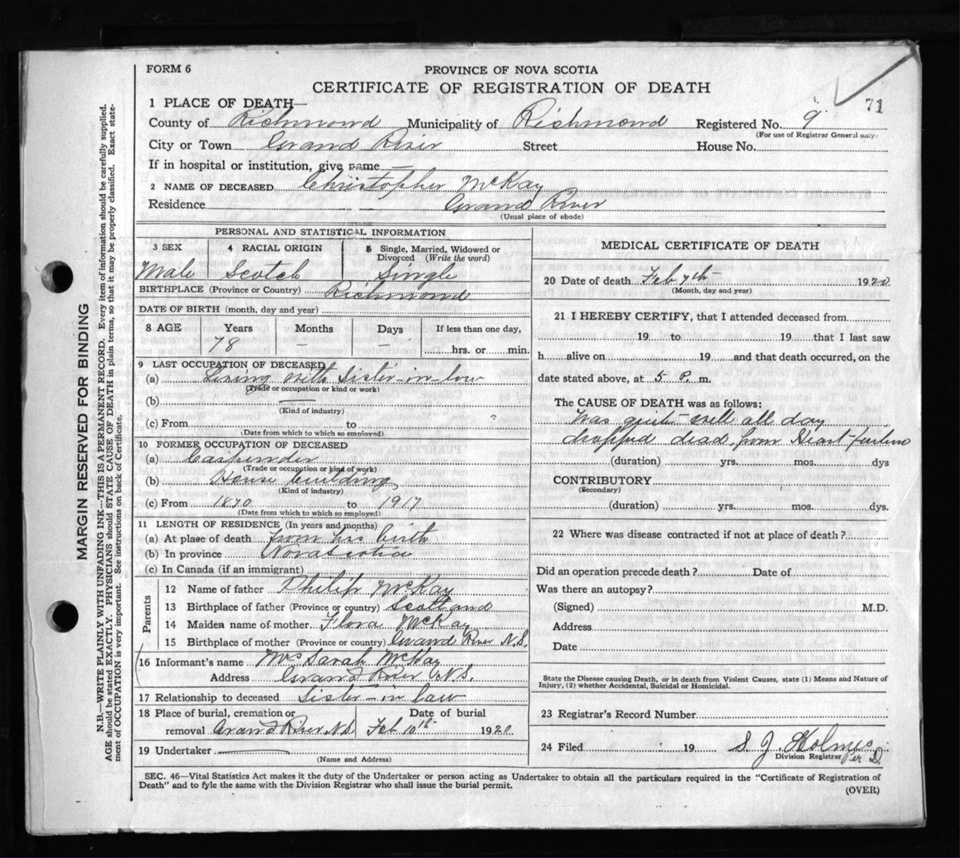 FORM 6
PROVINCE OF NOVA SCOTIA
CERTIFICATE OF REGISTRATION OF DEATH
71
1 PLACE OF DEATH—
County of Richmond Municipality of Richmond Registered No. 9
(For use of Registrar General only)
City or Town Grand River Street House No.
If in hospital or institution, give name —
2 NAME OF DECEASED Christopher McKay
Residence Grand River
(Usual place of abode)
PERSONAL AND STATISTICAL INFORMATION
3 SEX 4 RACIAL ORIGIN 5 Single, Married, Widowed or Divorced (Write the word)
Male Scotch Single
BIRTHPLACE (Province or Country) Richmond
DATE OF BIRTH (month, day and year)
8 AGE Years Months Days If less than one day,
78 — — hrs. or min.
9 LAST OCCUPATION OF DECEASED
(a) Living with Sister-in law
(Trade or occupation or kind or work)
(b) —
(Kind of industry)
(c) From to "
(Date from which to which so employed)
10 FORMER OCCUPATION OF DECEASED
(a) Carpender
(Trade or occupation or kind of work)
(b) House building
(Kind of industry)
(c) From 1870 to 1917
(Date from which to which so employed)
11 LENGTH OF RESIDENCE (In years and months)
(a) At place of death from his birth
(b) In province Nova Scotia
(c) In Canada (if an immigrant)
Parents
12 Name of father Philip McKay
13 Birthplace of father (Province or country) Scotland
14 Maiden name of mother Flora McKay
15 Birthplace of mother (Province or country) Grand River N.S.
16 Informant's name Mrs Sarah McKay
Address Grand River N.S.
17 Relationship to deceased Sister-in law
18 Place of burial, cremation or Date of burial
removal Grand River N.S. Feb 10th 1920
19 Undertaker
(Name and Address)
MEDICAL CERTIFICATE OF DEATH
20 Date of death Feb 7th 1920
(Month, day and year)
21 I HEREBY CERTIFY, that I attended deceased from
19 to 19 that I last saw
h alive on 19 and that death occurred, on the
date stated above, at 5 P. m.
The CAUSE OF DEATH was as follows:
Was quite well all day
dropped dead from Heart failure
(duration) yrs. mos. dys
CONTRIBUTORY
(Secondary)
(duration) yrs. mos. dys.
22 Where was disease contracted if not at place of death?
Did an operation precede death? Date of
Was there an autopsy?
(Signed) M.D.
Address
Date
State the Disease causing Death, or in death from Violent Causes, state (1) Means and Nature of
Injury, (2) whether Accidental, Suicidal or Homicidal.
23 Registrar's Record Number
24 Filed 19 S. J. Holmes
Division Registrar Per D.
SEC. 46—Vital Statistics Act makes it the duty of the Undertaker or person acting as Undertaker to obtain all the particulars required in the "Certificate of Registration of
Death" and to fyle the same with the Division Registrar who shall issue the burial permit.
(OVER)
MARGIN RESERVED FOR BINDING
N.B.—WRITE PLAINLY WITH UNFADING INK—THIS IS A PERMANENT RECORD. Every item of information should be carefully supplied.
AGE should be stated EXACTLY. PHYSICIANS should STATE CAUSE OF DEATH in plain terms, so that it may be properly classified. Exact state-
ment of OCCUPATION is very important. See instructions on back of Certificate.